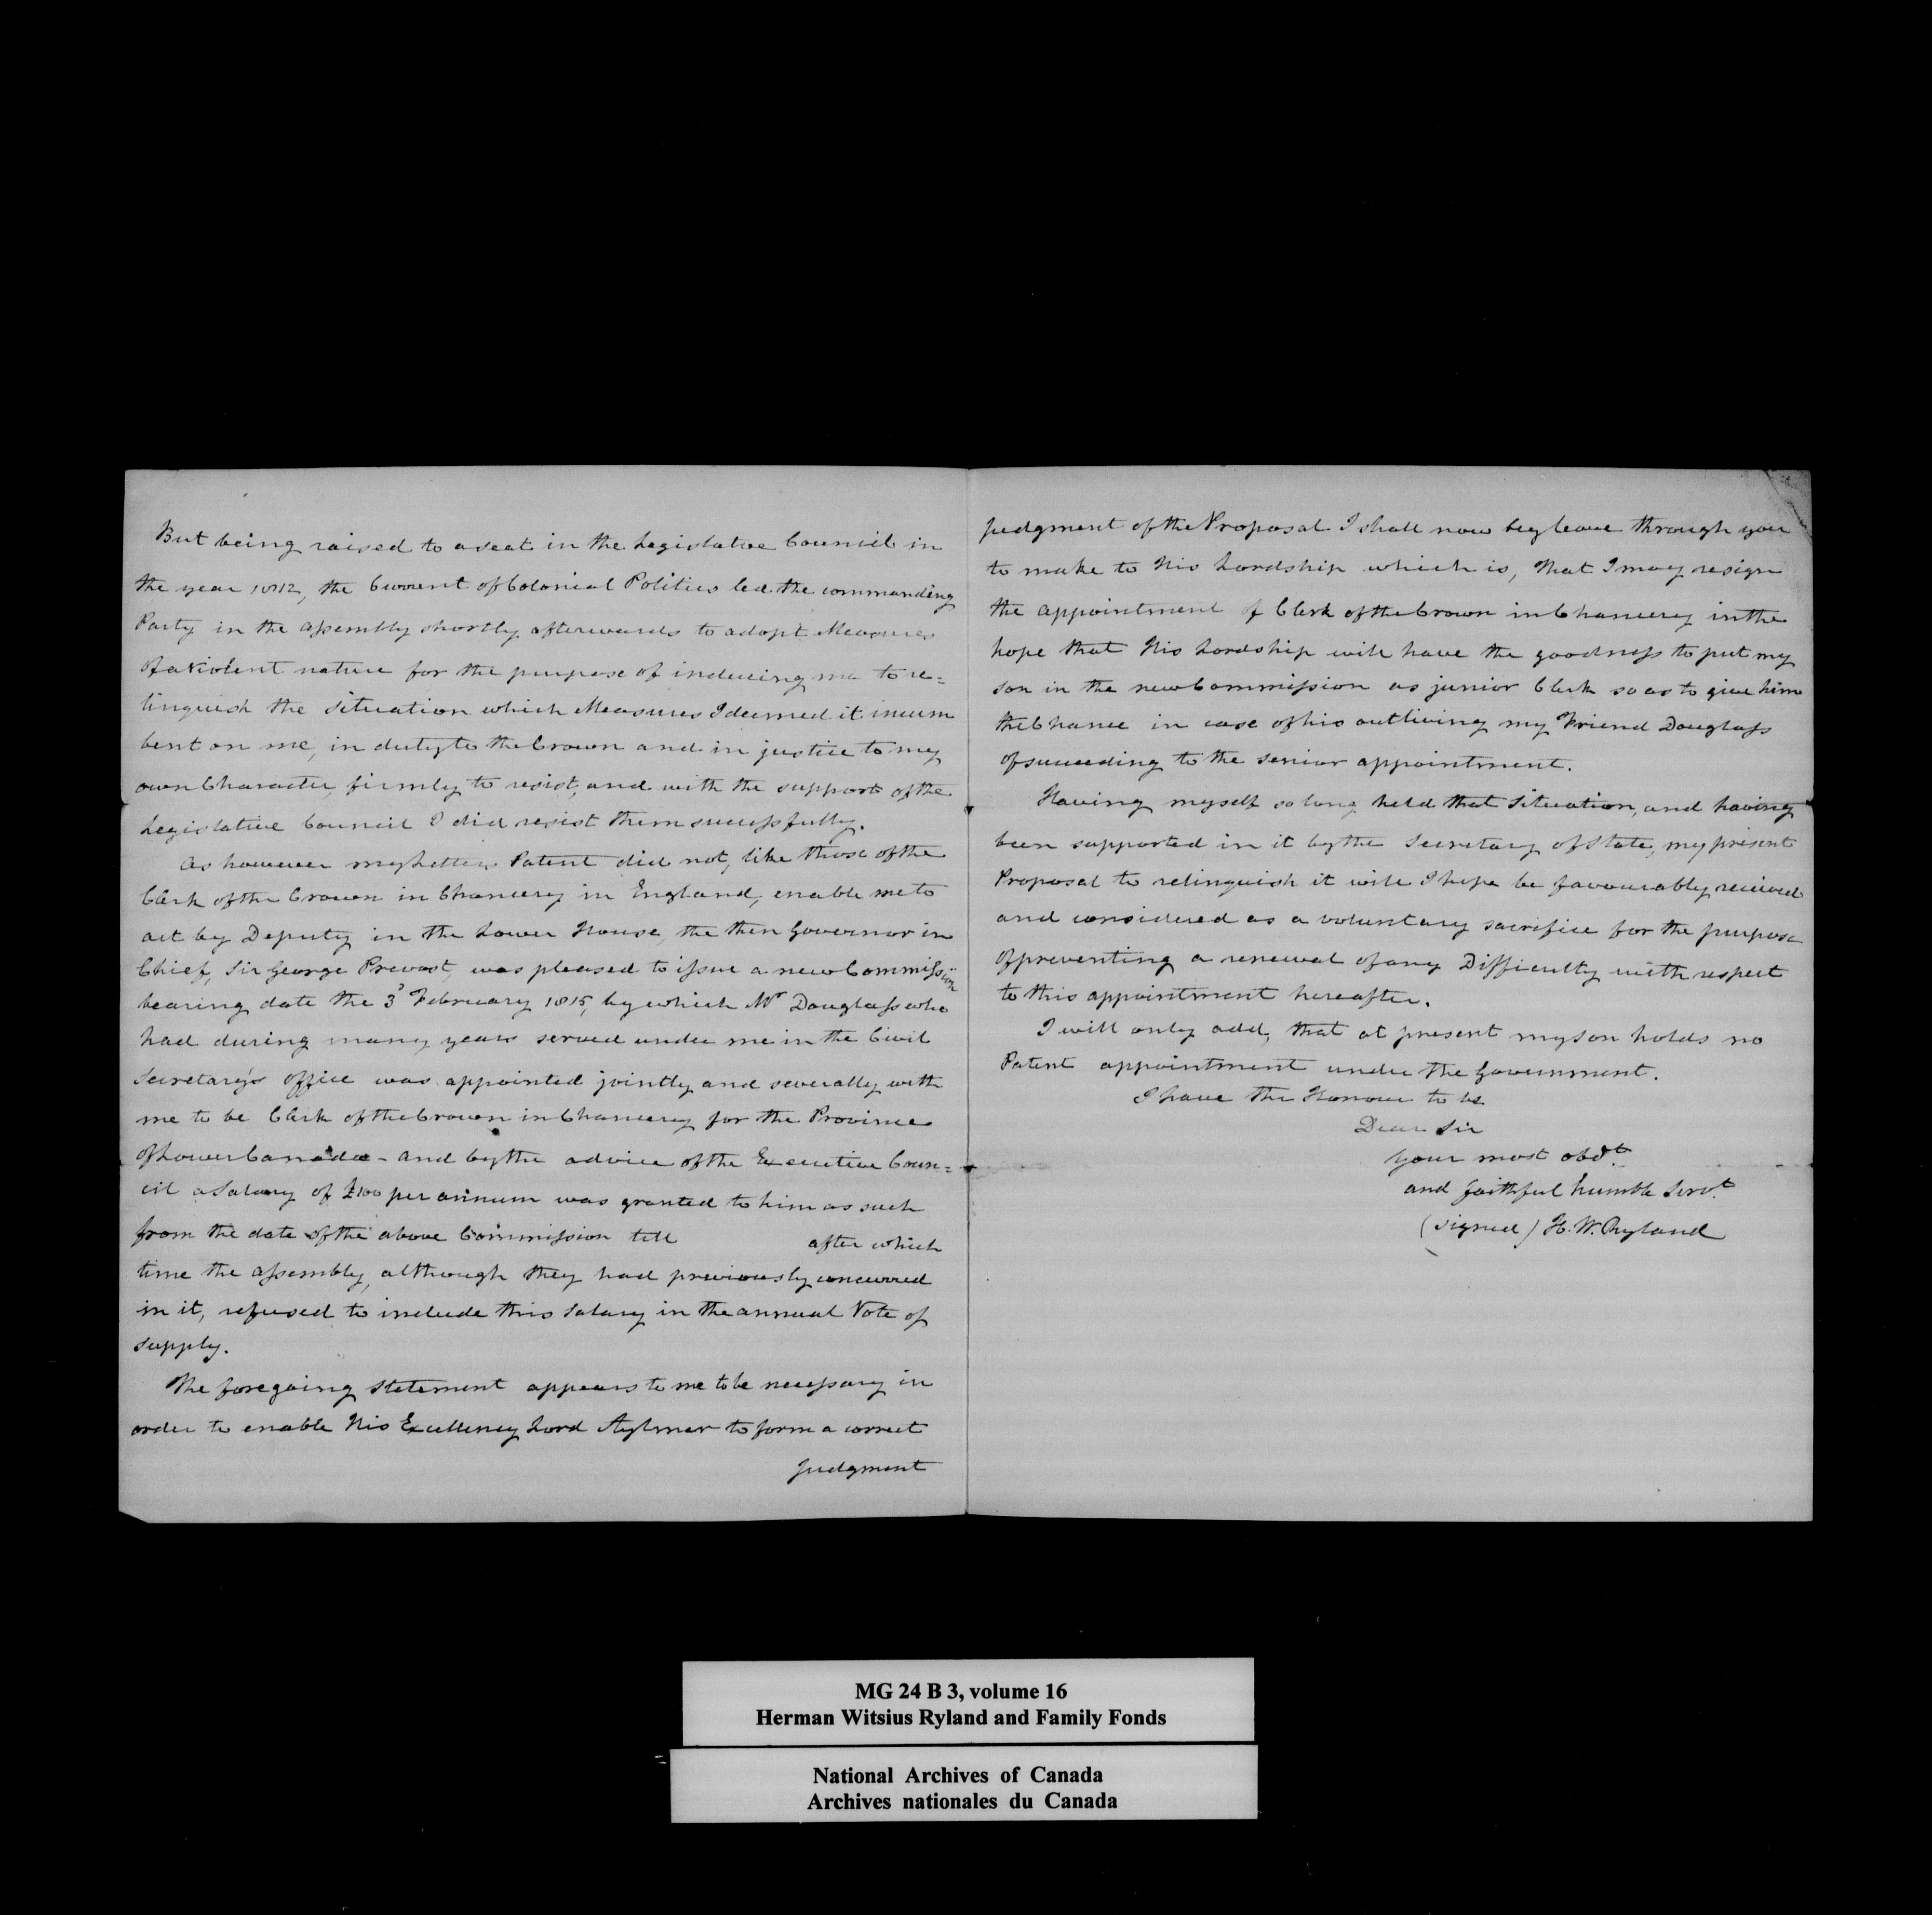 But being raised to a seat in the Legislative Council in
the year 1812, the Current of Colonial Politics led the commanding
Party in the Assembly shortly afterwards to adopt Measures
of a Violent nature for the purpose of inducing me to re=
linguish the situation which Measures I deemed it incum
bent on me, in duty to the Crown and in justice to my
own Character, firmly to resist, and with the support of the
Legislative Council I did resist them successfully.
As however my Letters Patent did not, like those of the
Clerk of the Crown in Chancery in England, enable me to
act by Deputy in the Lower House, the then Governor in
Chief, Sir George Prevost, was pleased to issue a new Commission
bearing date the 3d February 1815, by which Mr Douglass who
had during many years served under me in the Civil
Secretary's office was appointed jointly and severally with
me to be Clerk of the Crown in Chancery for the Province
of Lower Canada - and by the advice of the Executive Coun=
cil a Salary of £100 per annum was granted to him as such
from the date of the above Commission till after which
time the Assembly, although they had previously concurred
in it, refused to include this Salary in the annual Vote of
supply.
The foregoing statement appears to me to be necessary in
order to enable His Excellency Lord Aylmer to form a correct
Judgment
judgment of the Proposal I shall now beg leave through you
to make to His Lordship which is, that I may resign
the appointment of Clerk of the Crown in Chancery in the
hope that His Lordship will have the goodness to put my
son in the new Commission as junior Clerk so as to give him
the Chance in case of his outliving my Friend Douglass
of succeeding to the senior appointment.
Having myself so long held that Situation, and having
been supported in it by the Secretary of State, my present
Proposal to relinquish it will I hope be favourably received
and considered as a voluntary sacrifice for the purpose
of preventing a renewal of any Difficulty with respect
to this appointment hereafter.
I will only add, that at present my son holds no
Patent appointment under the Government.
I have the Honour to be
Dear Sir
your most obdt
and faithful humble Servt
(signed) H. W. Ryland
MG 24 B 3, volume 16
Herman Witsius Ryland and Family Fonds
National Archives of Canada
Archives nationales du Canada